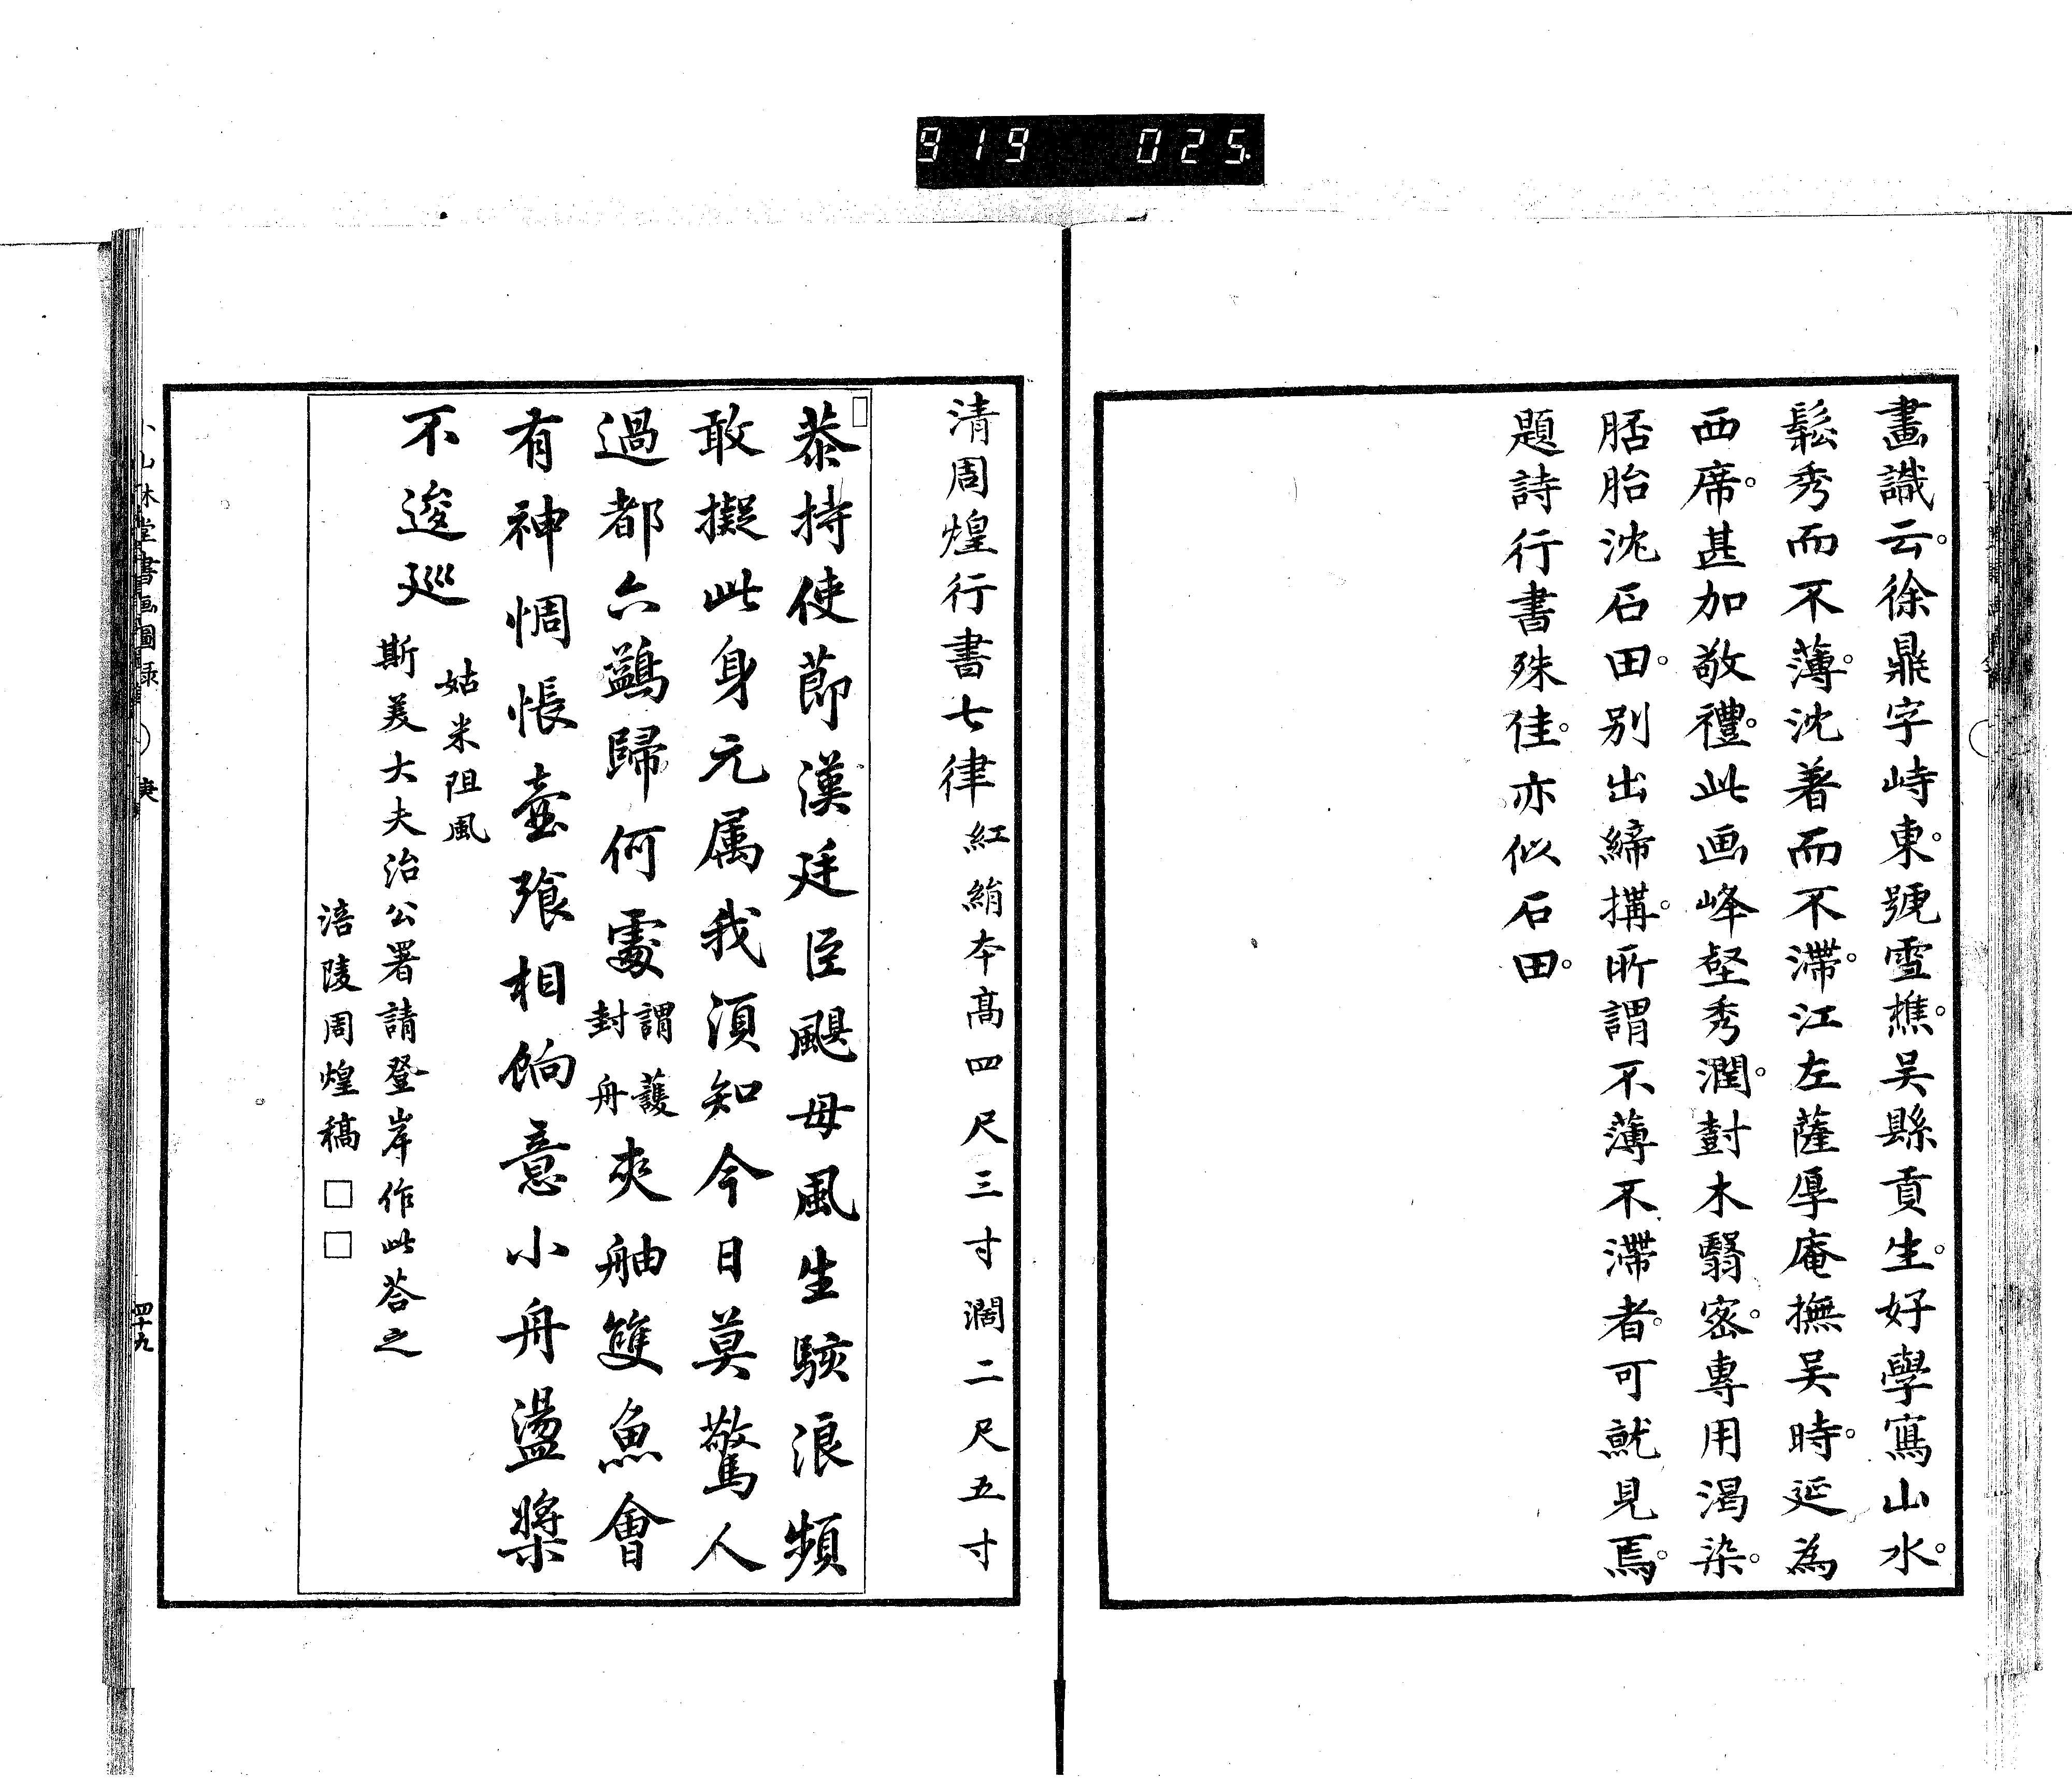 919 025.
畫識云。徐鼎字峙東。號雪樵。吴縣貢生。好學寫山水。
鬆秀而不薄。沈著而不滯。江左薩厚庵撫吴時。延為
西席。甚加敬禮。此画峰壑秀潤。樹木翳密。專用渴染。
胚胎沈石田。别出締搆。所謂不薄不滯者。可就見焉。
題詩行書殊佳。亦似石田。
清周煌行書七律 紅絹本高四尺三寸濶二尺五寸
忝持使節漢廷臣颶母風生駭浪頻
敢擬此身元属我須知今日莫驚人
過都六鷁歸何處 謂護封舟 夾舳雙魚會
有神惆悵壺飱相餉意小舟盪槳
不逡巡
姑米阻風
斯美大夫治公署請登岸作此荅之
涪陵周煌稿 □□
山林堂書画圖録 庚
四十九